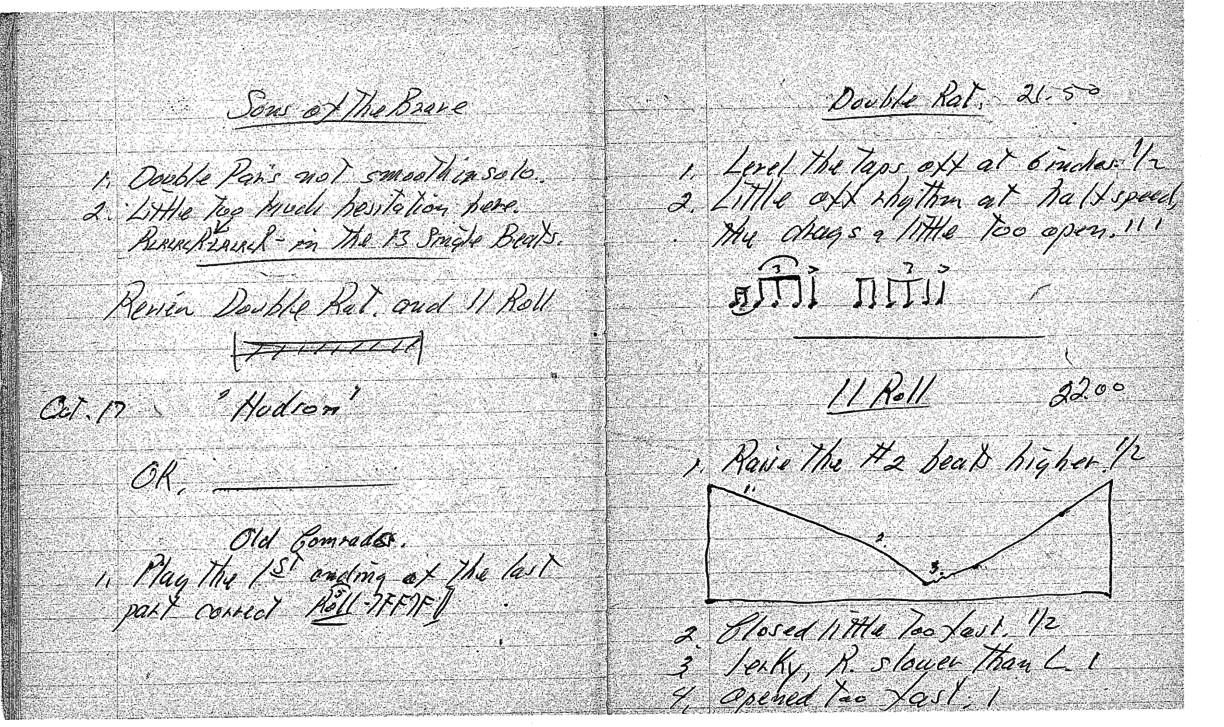 Sons of The Brave
1. Double Par's not smooth in solo.
2. Little Too Much hesitation here.
- in The 13 Single Beats.
Review Double Rat. and 11 Roll
Oct. 17 "Hudson"
OK,
Old Comrades.
1. Play the 1ST ending of the last
part correct Roll
Double Rat. 21.50
1. Level the Taps off at 6 inches. 1/2
2. Little off rhythm at half speed,
the drags a little Too open. 111
3 7
11 Roll 22.00
1. Raise The #2 beats higher. 1/2
1.
2.
3.
2. Closed little Too fast. 1/2
3 Jerky, R. slower Than L. 1
4. Opened Too fast. 1